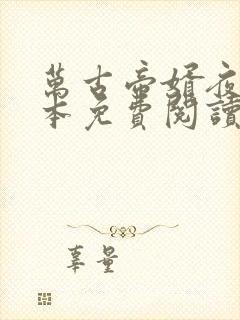 萬古帝婿夜
本免費閱讀
辜量